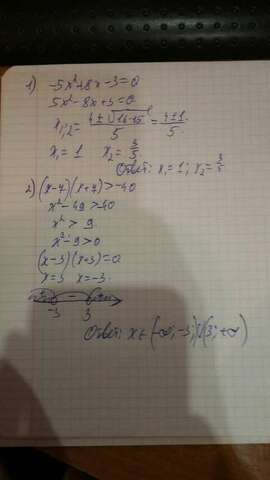 1) -5x²+8x-3=0
5x²-8x+3=0
x₁;₂= (4±√16-15)/5 = (4±1)/5
x₁=1 x₂=3/5
Ответ: x₁=1; x₂=3/5
2) (x-7)(x+7)>-40
x²-49>-40
x²>9
x²-9>0
(x-3)(x+3)=0
x=3 x=-3
-
-3 3
Ответ: x∈(-∞;-3)∪(3;+∞)